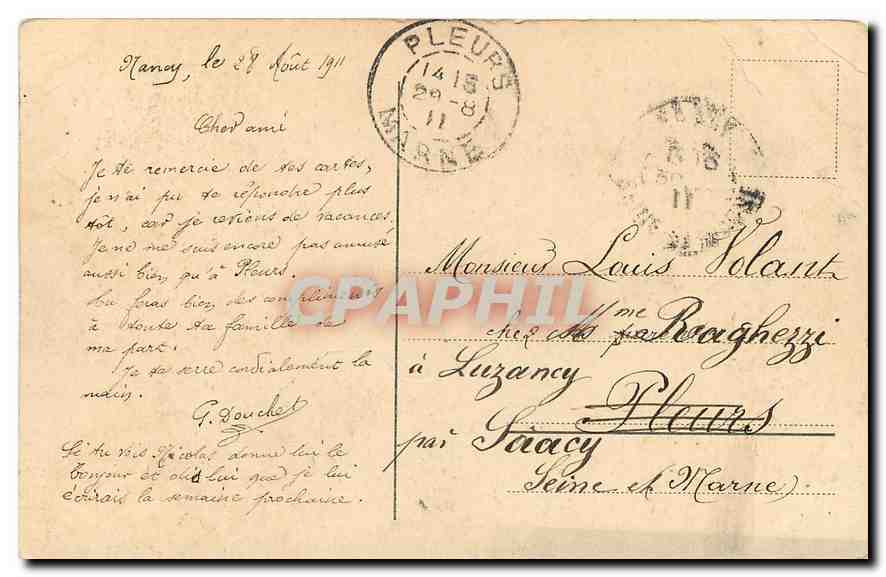 Nancy, le 28 Août 1911
Cher ami
Je te remercie de tes cartes,
je n'ai pu te répondre plus
tôt, car je reviens de vacances.
Je ne me suis encore pas amusé
aussi bien qu'à Pleurs.
Tu feras bien des compliments
à toute ta famille de
ma part.
Je te serre cordialement la
main.
G. Douchet
Si tu vois Nicolas donne lui le
bonjour et dis lui que je lui
écrirais la semaine prochaine.
PLEURS
14 15
29-8
11
MARNE
11
CPAPHIL
Monsieur Louis Volant
chez Mme Raaghezzi
à Luzancy
Pleurs
par Saacy
Seine et Marne